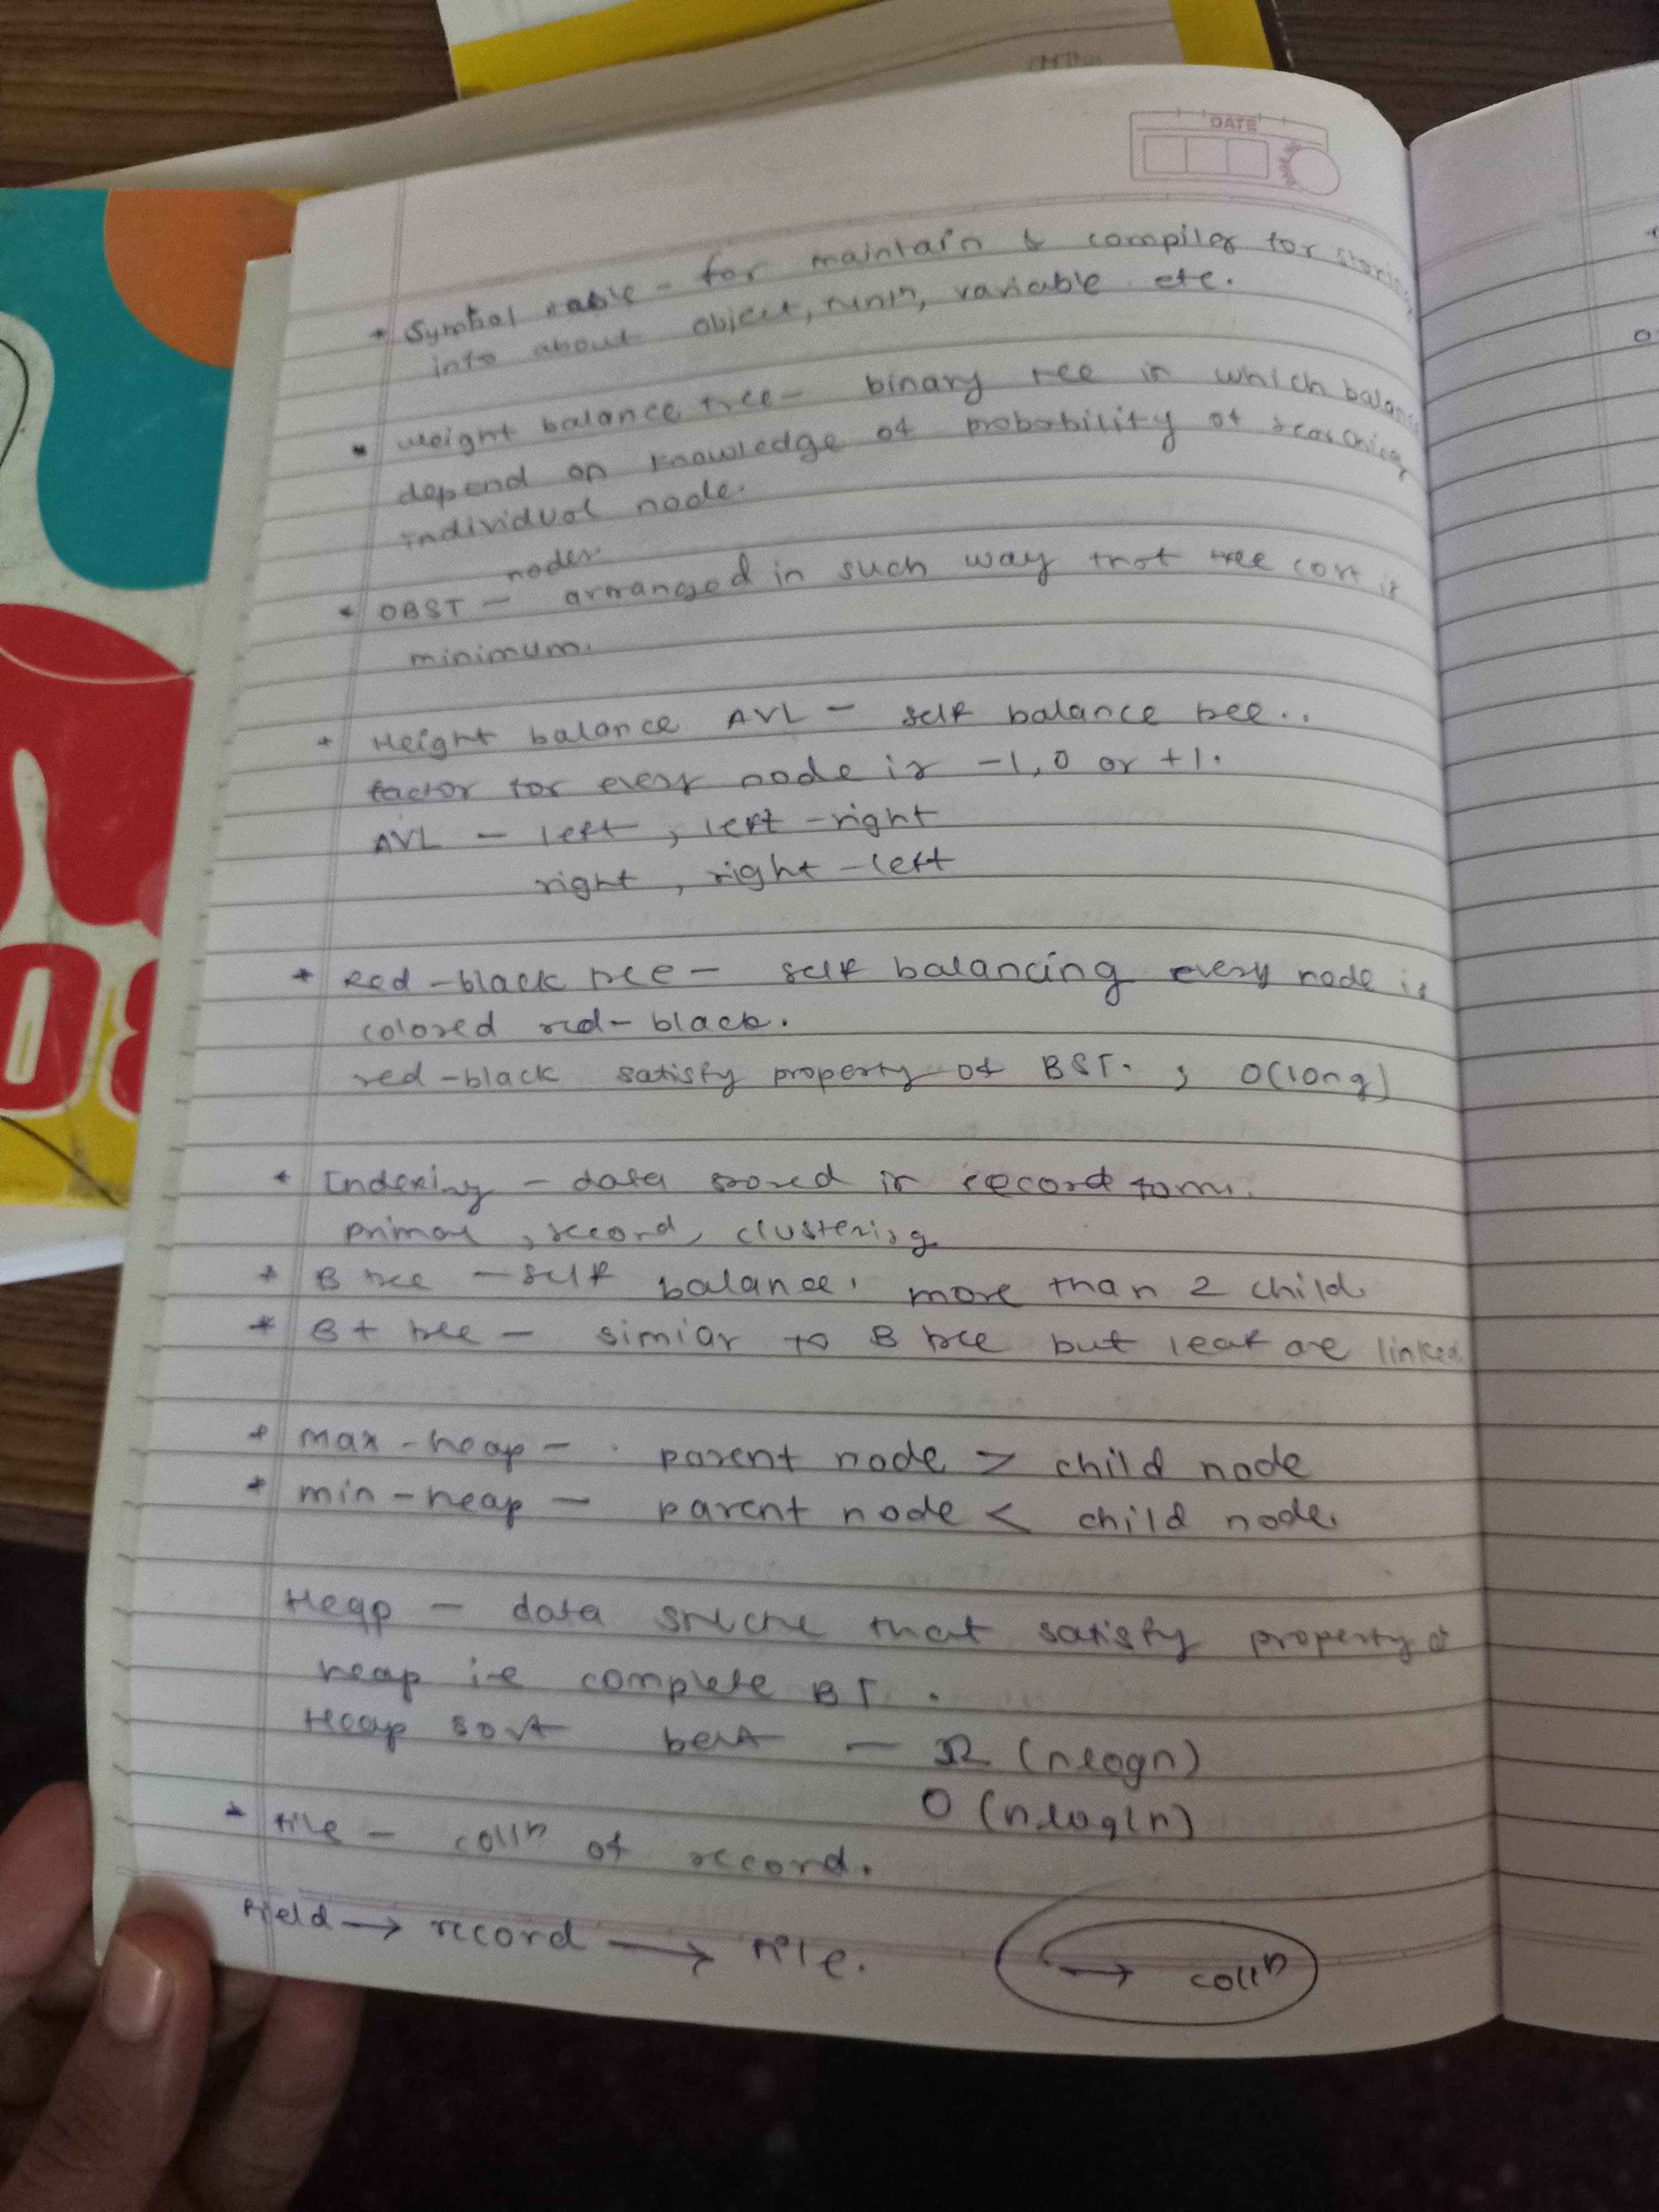 DATE
* Symbol table - for maintain & compiler for storing
info about object, funⁿ, variable etc.
* Weight balance tree - binary tree in which balance
depend on knowledge of probability of searching
individual node.
nodes
* OBST - arranged in such way that tree cost is
minimum.
* Height balance AVL - self balance tree..
factor for every node is -1, 0 or +1.
AVL - left, left-right
right, right-left
* Red-black tree - self balancing every node is
colored red-black.
red-black satisfy property of BST. ; O(logn)
* Indexing - data stored in record form.
primar, second, clustering
* B tree - self balance, more than 2 child.
* B+ tree - simiar to B tree but leaf are linked
* max-heap - parent node > child node
* min-heap - parent node < child node.
Heap - data that satisfy property of
heap i.e complete BT.
Heap sort best - Ω (nlogn)
O (nlog(n)
* file - collⁿ of record.
Field → record → file.
→ collⁿ